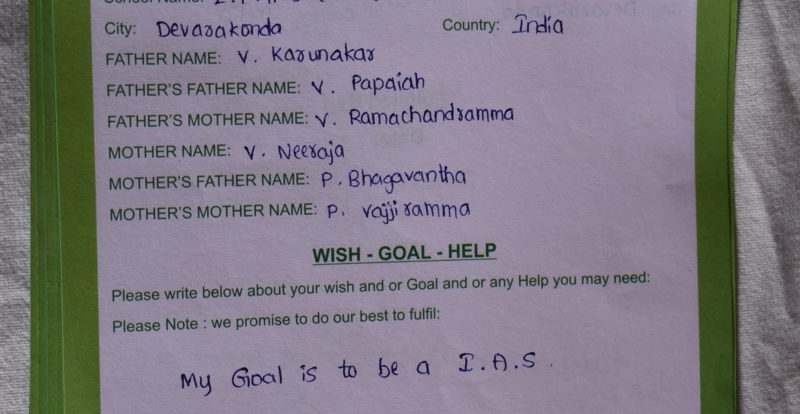 City: Devarakonda Country: India
FATHER NAME: V. Karunakar
FATHER'S FATHER NAME: V. Papaiah
FATHER'S MOTHER NAME: V. Ramachandramma
MOTHER NAME: V. Neeraja
MOTHER'S FATHER NAME: P. Bhagavantha
MOTHER'S MOTHER NAME: P. Vajjiramma
WISH - GOAL - HELP
Please write below about your wish and or Goal and or any Help you may need:
Please Note : we promise to do our best to fulfil:
My Goal is to be a I.A.S.